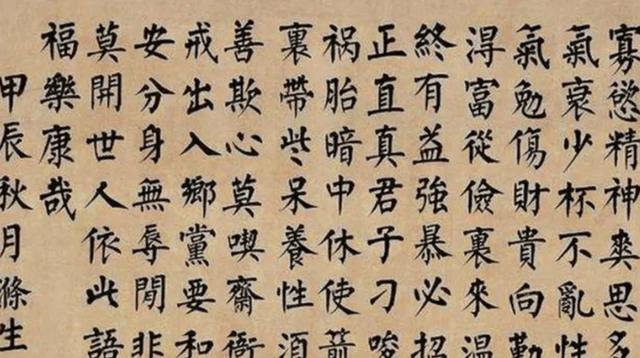 寡慾精神爽思多
氣衰少杯不亂性
氣勉傷財貴向勤
淂富從儉裏來温
終有益強暴必招
正直真君子刁唆
祸胎暗中休使箭
裏帶些呆養性須
善欺心莫喫齋衙
戒出入鄉黨要和
安分身無辱閒非
莫開世人依此語
福樂康哉
甲辰秋月滌生